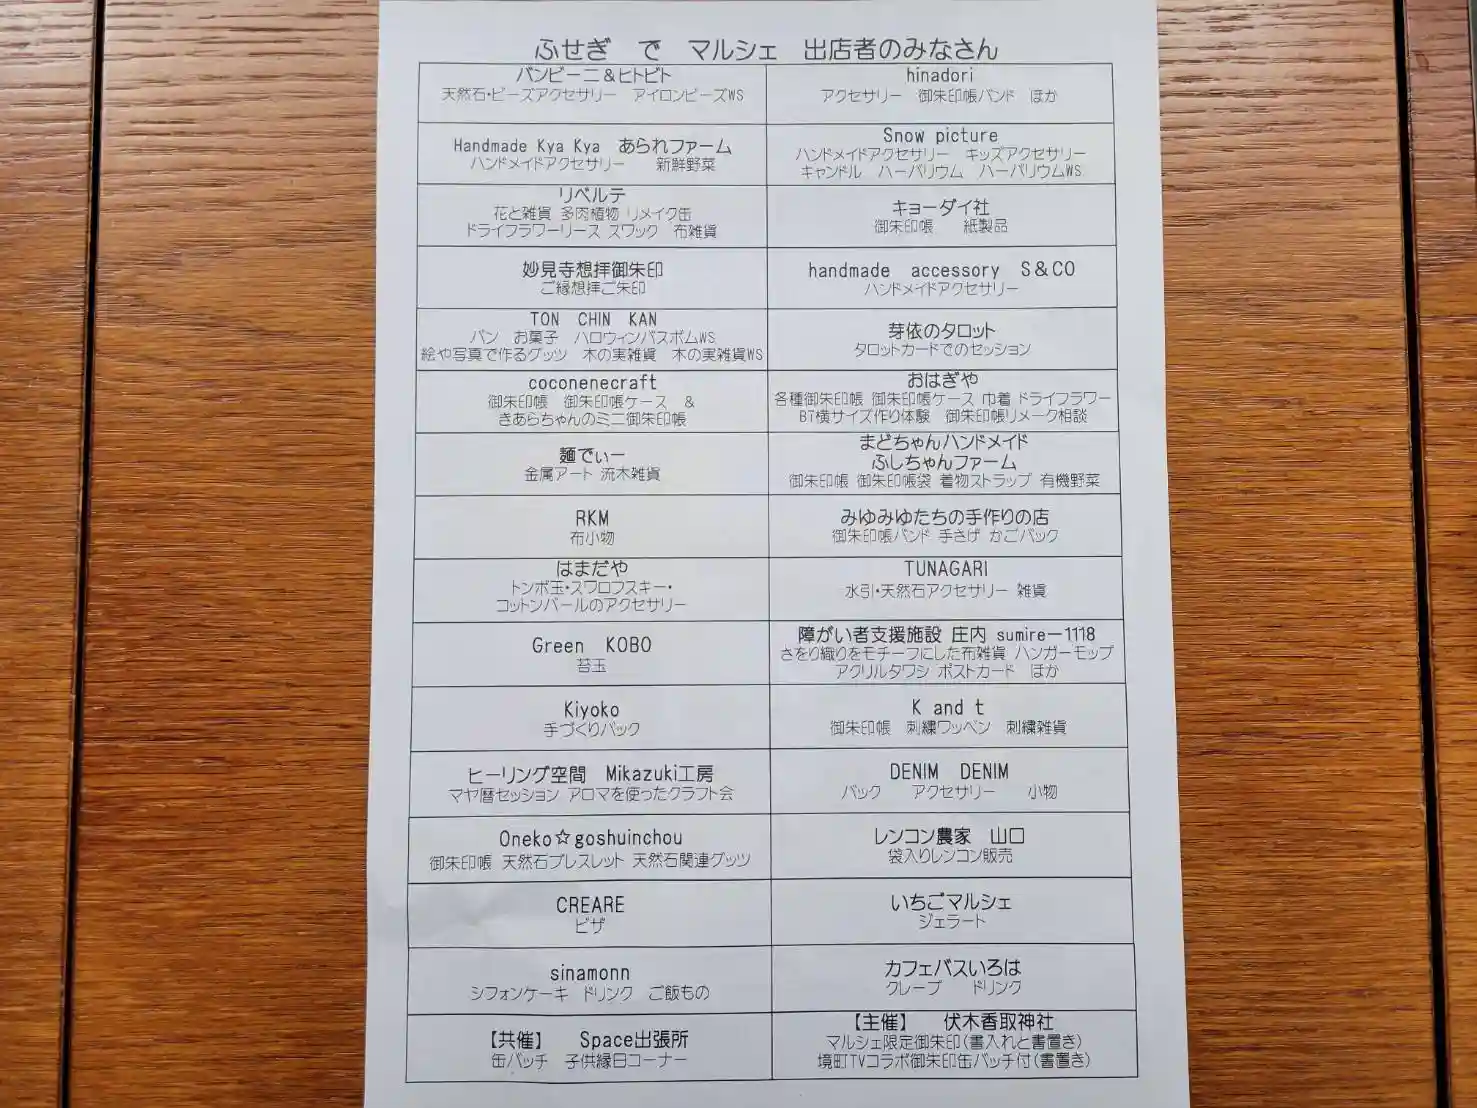 ふせぎ で マルシェ 出店者のみなさん
バンビーニ＆ヒトビト
天然石・ビーズアクセサリー アイロンビーズWS
hinadori
アクセサリー 御朱印帳バンド ほか
Handmade Kya Kya あられファーム
ハンドメイドアクセサリー 新鮮野菜
Snow picture
ハンドメイドアクセサリー キッズアクセサリー
キャンドル ハーバリウム ハーバリウムWS
リベルテ
花と雑貨 多肉植物 リメイク缶
ドライフラワーリース スワッグ 布雑貨
キョーダイ社
御朱印帳 紙製品
妙見寺想拝御朱印
ご縁想拝ご朱印
handmade accessory S＆CO
ハンドメイドアクセサリー
TON CHIN KAN
パン お菓子 ハロウィンバスボムWS
絵や写真で作るグッツ 木の実雑貨 木の実雑貨WS
芽依のタロット
タロットカードでのセッション
coconenecraft
御朱印帳 御朱印帳ケース ＆
きあらちゃんのミニ御朱印帳
おはぎや
各種御朱印帳 御朱印帳ケース 巾着 ドライフラワー
BT横サイズ作り体験 御朱印帳リメーク相談
麺でぃー
金属アート 流木雑貨
まどちゃんハンドメイド
ふしちゃんファーム
御朱印帳 御朱印帳袋 着物ストラップ 有機野菜
RKM
布小物
みゆみゆたちの手作りの店
御朱印帳バンド 手さげ かごバック
はまだや
トンボ玉・スワロフスキー・
コットンパールのアクセサリー
TUNAGARI
水引・天然石アクセサリー 雑貨
Green KOBO
苔玉
障がい者支援施設 庄内 sumire－1118
さをり織りをモチーフにした布雑貨 ハンガーモップ
アクリルタワシ ポストカード ほか
Kiyoko
手づくりバック
K and t
御朱印帳 刺繍ワッペン 刺繍雑貨
ヒーリング空間 Mikazuki工房
マヤ暦セッション アロマを使ったクラフト会
DENIM DENIM
バック アクセサリー 小物
Oneko☆goshuinchou
御朱印帳 天然石ブレスレット 天然石関連グッツ
レンコン農家 山口
袋入りレンコン販売
CREARE
ピザ
いちごマルシェ
ジェラート
sinamonn
シフォンケーキ ドリンク ご飯もの
カフェバスいろは
クレープ ドリンク
【共催】 Space出張所
缶バッチ 子供縁日コーナー
【主催】 伏木香取神社
マルシェ限定御朱印(書入れと書置き)
境町TVコラボ御朱印缶バッチ付(書置き)